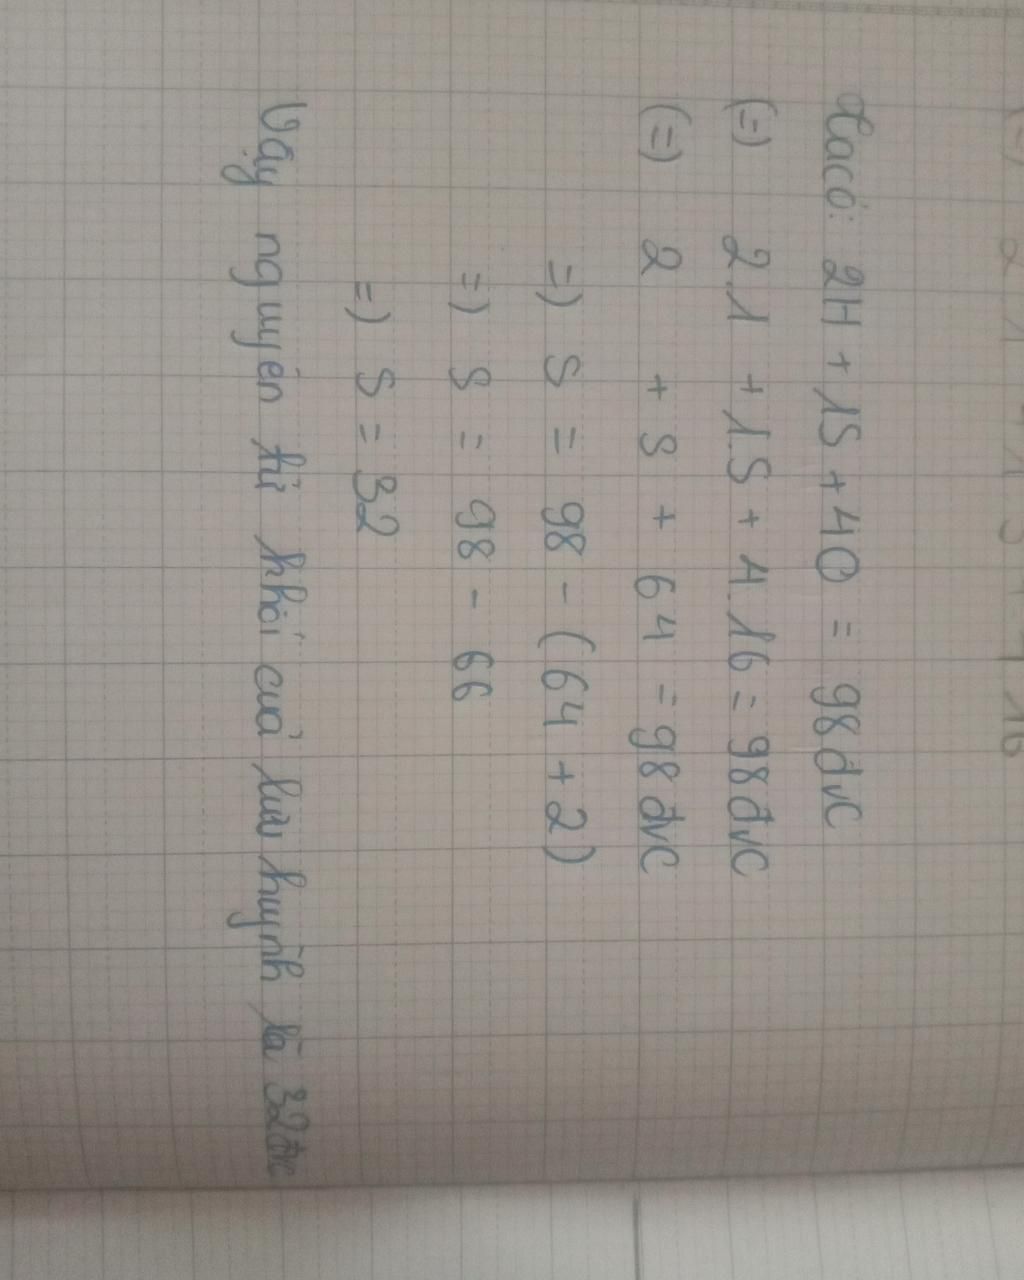 Ta có: 2H + 1S + 4O = 98 đvC
(=) 2.1 + 1S + 4.16 = 98 đvC
(=) 2 + S + 64 = 98 đvC
=) S = 98 - (64 + 2)
=) S = 98 - 66
=) S = 32
Vậy nguyên tử khối cuả lưu huỳnh là 32 đvC